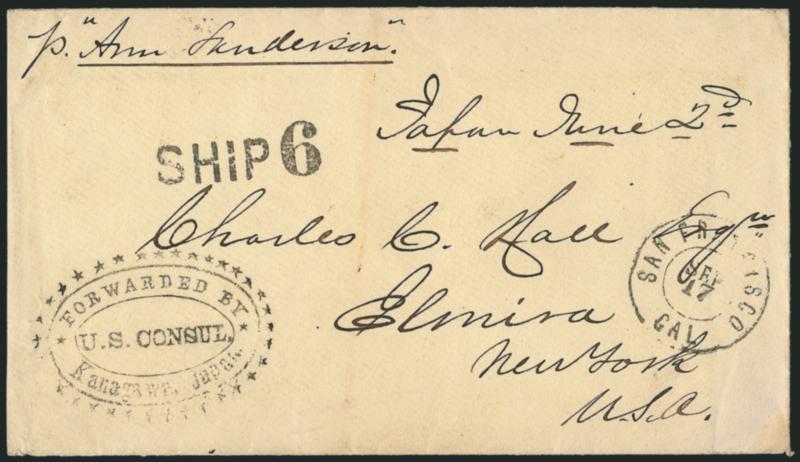 p. "Ann Sanderson".
Japan June 2d
SHIP 6
Charles C. Hall Esqr
Elmira
New York
U.S.A.
FORWARDED BY
U.S. CONSUL.
Kanagawa, Japan.
SAN FRANCISCO
SEP
17
CAL